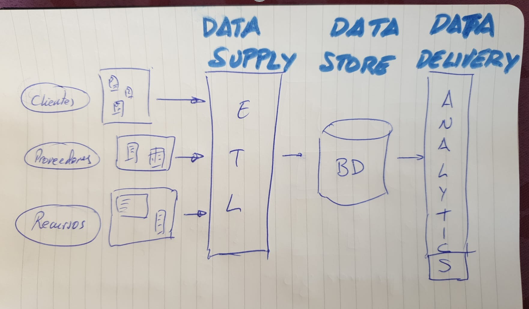 DATA SUPPLY
DATA STORE
DATA DELIVERY
Clientes
Proveedores
Recursos
E
T
L
BD
A
N
A
L
Y
T
I
C
S